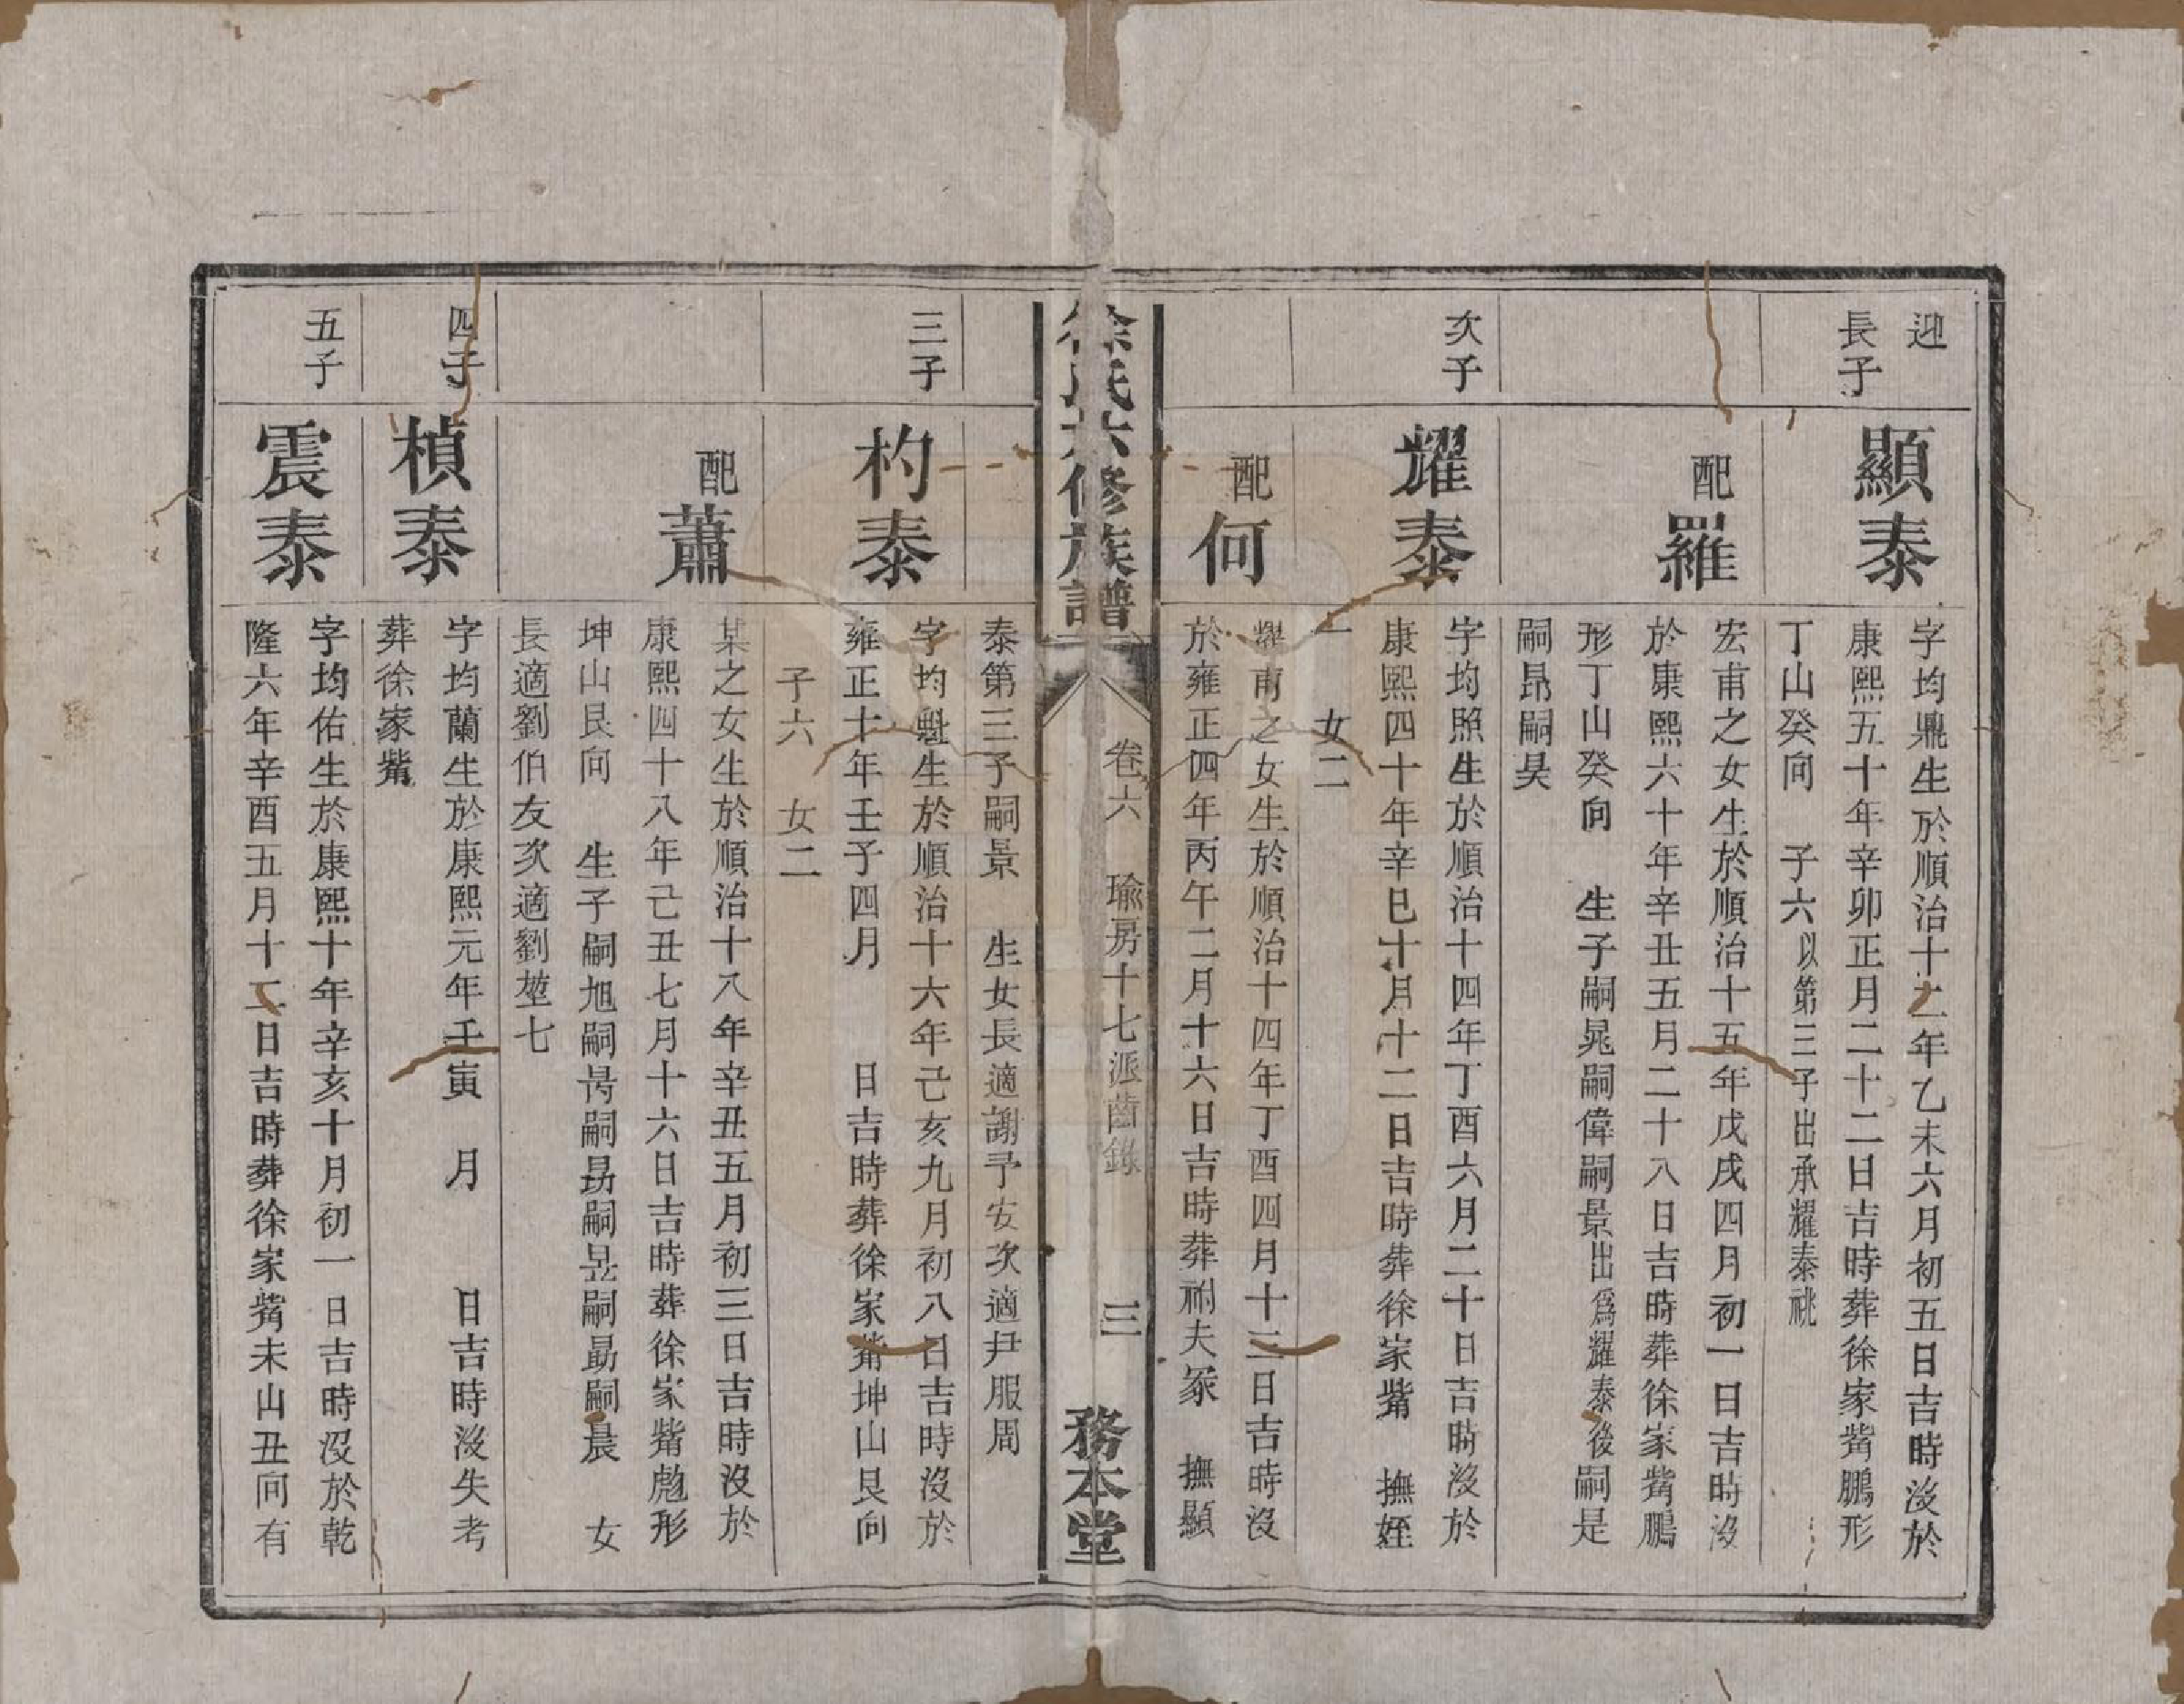 迎
長子
顯泰
字均鼎生於順治十二年乙未六月初五日吉時沒於
康熙五十年辛卯正月二十二日吉時葬徐家觜鵬形
丁山癸向　子六以第三子出承耀泰祧
配羅
宏甫之女生於順治十五年戊戌四月初一日吉時沒
於康熙六十年辛丑五月二十八日吉時葬徐家觜鵬
形丁山癸向　生子嗣晃嗣偉嗣景出爲耀泰後嗣是
嗣昂嗣昊
次子
耀泰
字均照生於順治十四年丁酉六月二十日吉時沒於
康熙四十年辛巳十月十二日吉時葬徐家觜　撫姪
一　女二
配何
耀甫之女生於順治十四年丁酉四月十三日吉時沒
於雍正四年丙午二月十六日吉時葬祔夫冢　撫顯
徐氏六修族譜
卷六　瑜房十七派齒錄
三
務本堂
泰第三子嗣景　生女長適謝予安次適尹服周
三子
杓泰
字均魁生於順治十六年己亥九月初八日吉時沒於
雍正十年壬子四月　日吉時葬徐家觜坤山艮向
子六　女二
配蕭
某之女生於順治十八年辛丑五月初三日吉時沒於
康熙四十八年己丑七月十六日吉時葬徐家觜彪形
坤山艮向　生子嗣旭嗣嗣嗣昱嗣勗嗣晨　女
長適劉伯友次適劉堃七
四子
楨泰
字均蘭生於康熙元年壬寅　月　日吉時沒失考
葬徐家觜
五子
震泰
字均佑生於康熙十年辛亥十月初一日吉時沒於乾
隆六年辛酉五月十二日吉時葬徐家觜未山丑向有